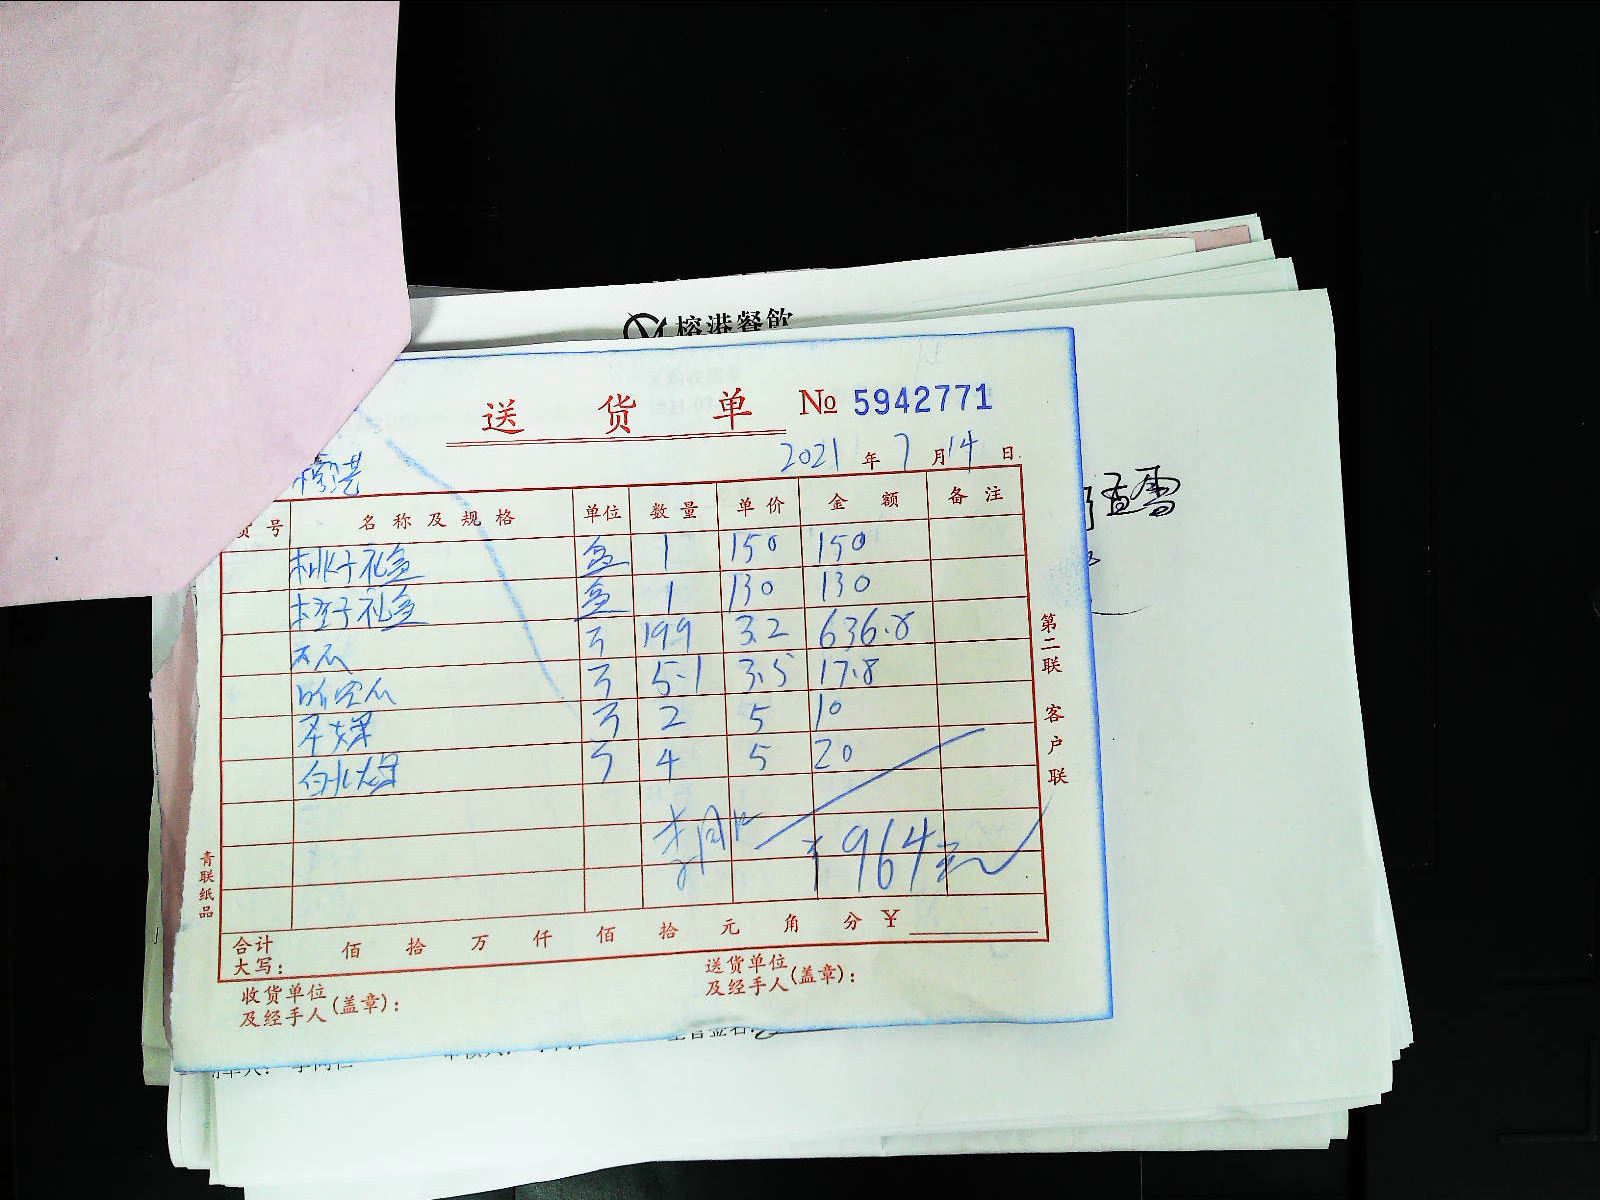 榕港餐飲
送货单 № 5942771
2021年7月14日
榕港
货号 名称及规格 单位 数量 单价 金额 备注
桃子礼盒 盒 1 150 150
桂子礼盒 盒 1 130 130
斤 199 3.2 636.8
斤 5.1 3.5 17.8
斤 2 5 10
斤 4 5 20
¥964元
合计大写： 佰 拾 万 仟 佰 拾 元 角 分 ¥
收货单位及经手人(盖章)：
送货单位及经手人(盖章)：
第二联 客户联
青联纸品